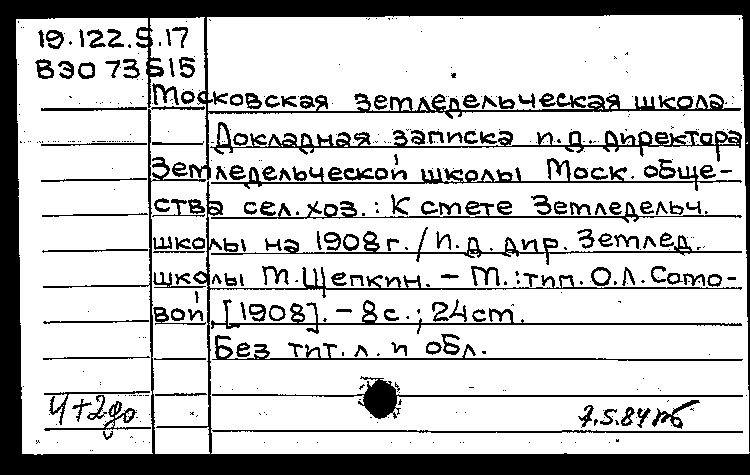 19.122.5.17
ВЭО 73515
Московская земледельческая школа
Докладная записка и.д. директора
Земледельческой школы Моск. обще-
ства сел.хоз.: К смете Земледельч.
школы на 1908 г. / И.д. дир. Землед.
школы М.Щепкин. – М.: тип. О.Л.Сомо-
вой, [1908]. – 8 с.; 24 cm.
Без тит. л. и обл.
4+2до
7.5.84